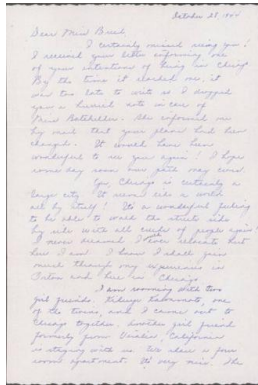 October 28, 1944
Dear Miss Breed
I certainly missed seeing you!
I received your letter informing me
of your intentions of being in Chicago
By the time it reached me, it
was too late to write so I dropped
you a hurried note in care of
Miss Batchelder. She informed me
by mail that your plans had been
changed. It would have been
wonderful to see you again! I hope
some day soon our path may cross.
Yes, Chicago is certainly a
large city. It seems like a world
all by itself! It's a wonderful feeling
to be able to walk the streets side
by side with all kinds of people again!
I never dreamed I'd ever relocate but
here I am. I know I shall gain
much through my experiences in
Poston and here in Chicago
I am rooming with two
girl friends. one
of the , and I came out to
Chicago together. Another girl friend
formerly from Visalia, California
is staying with us. We share a four
room apartment. It's very nice. The